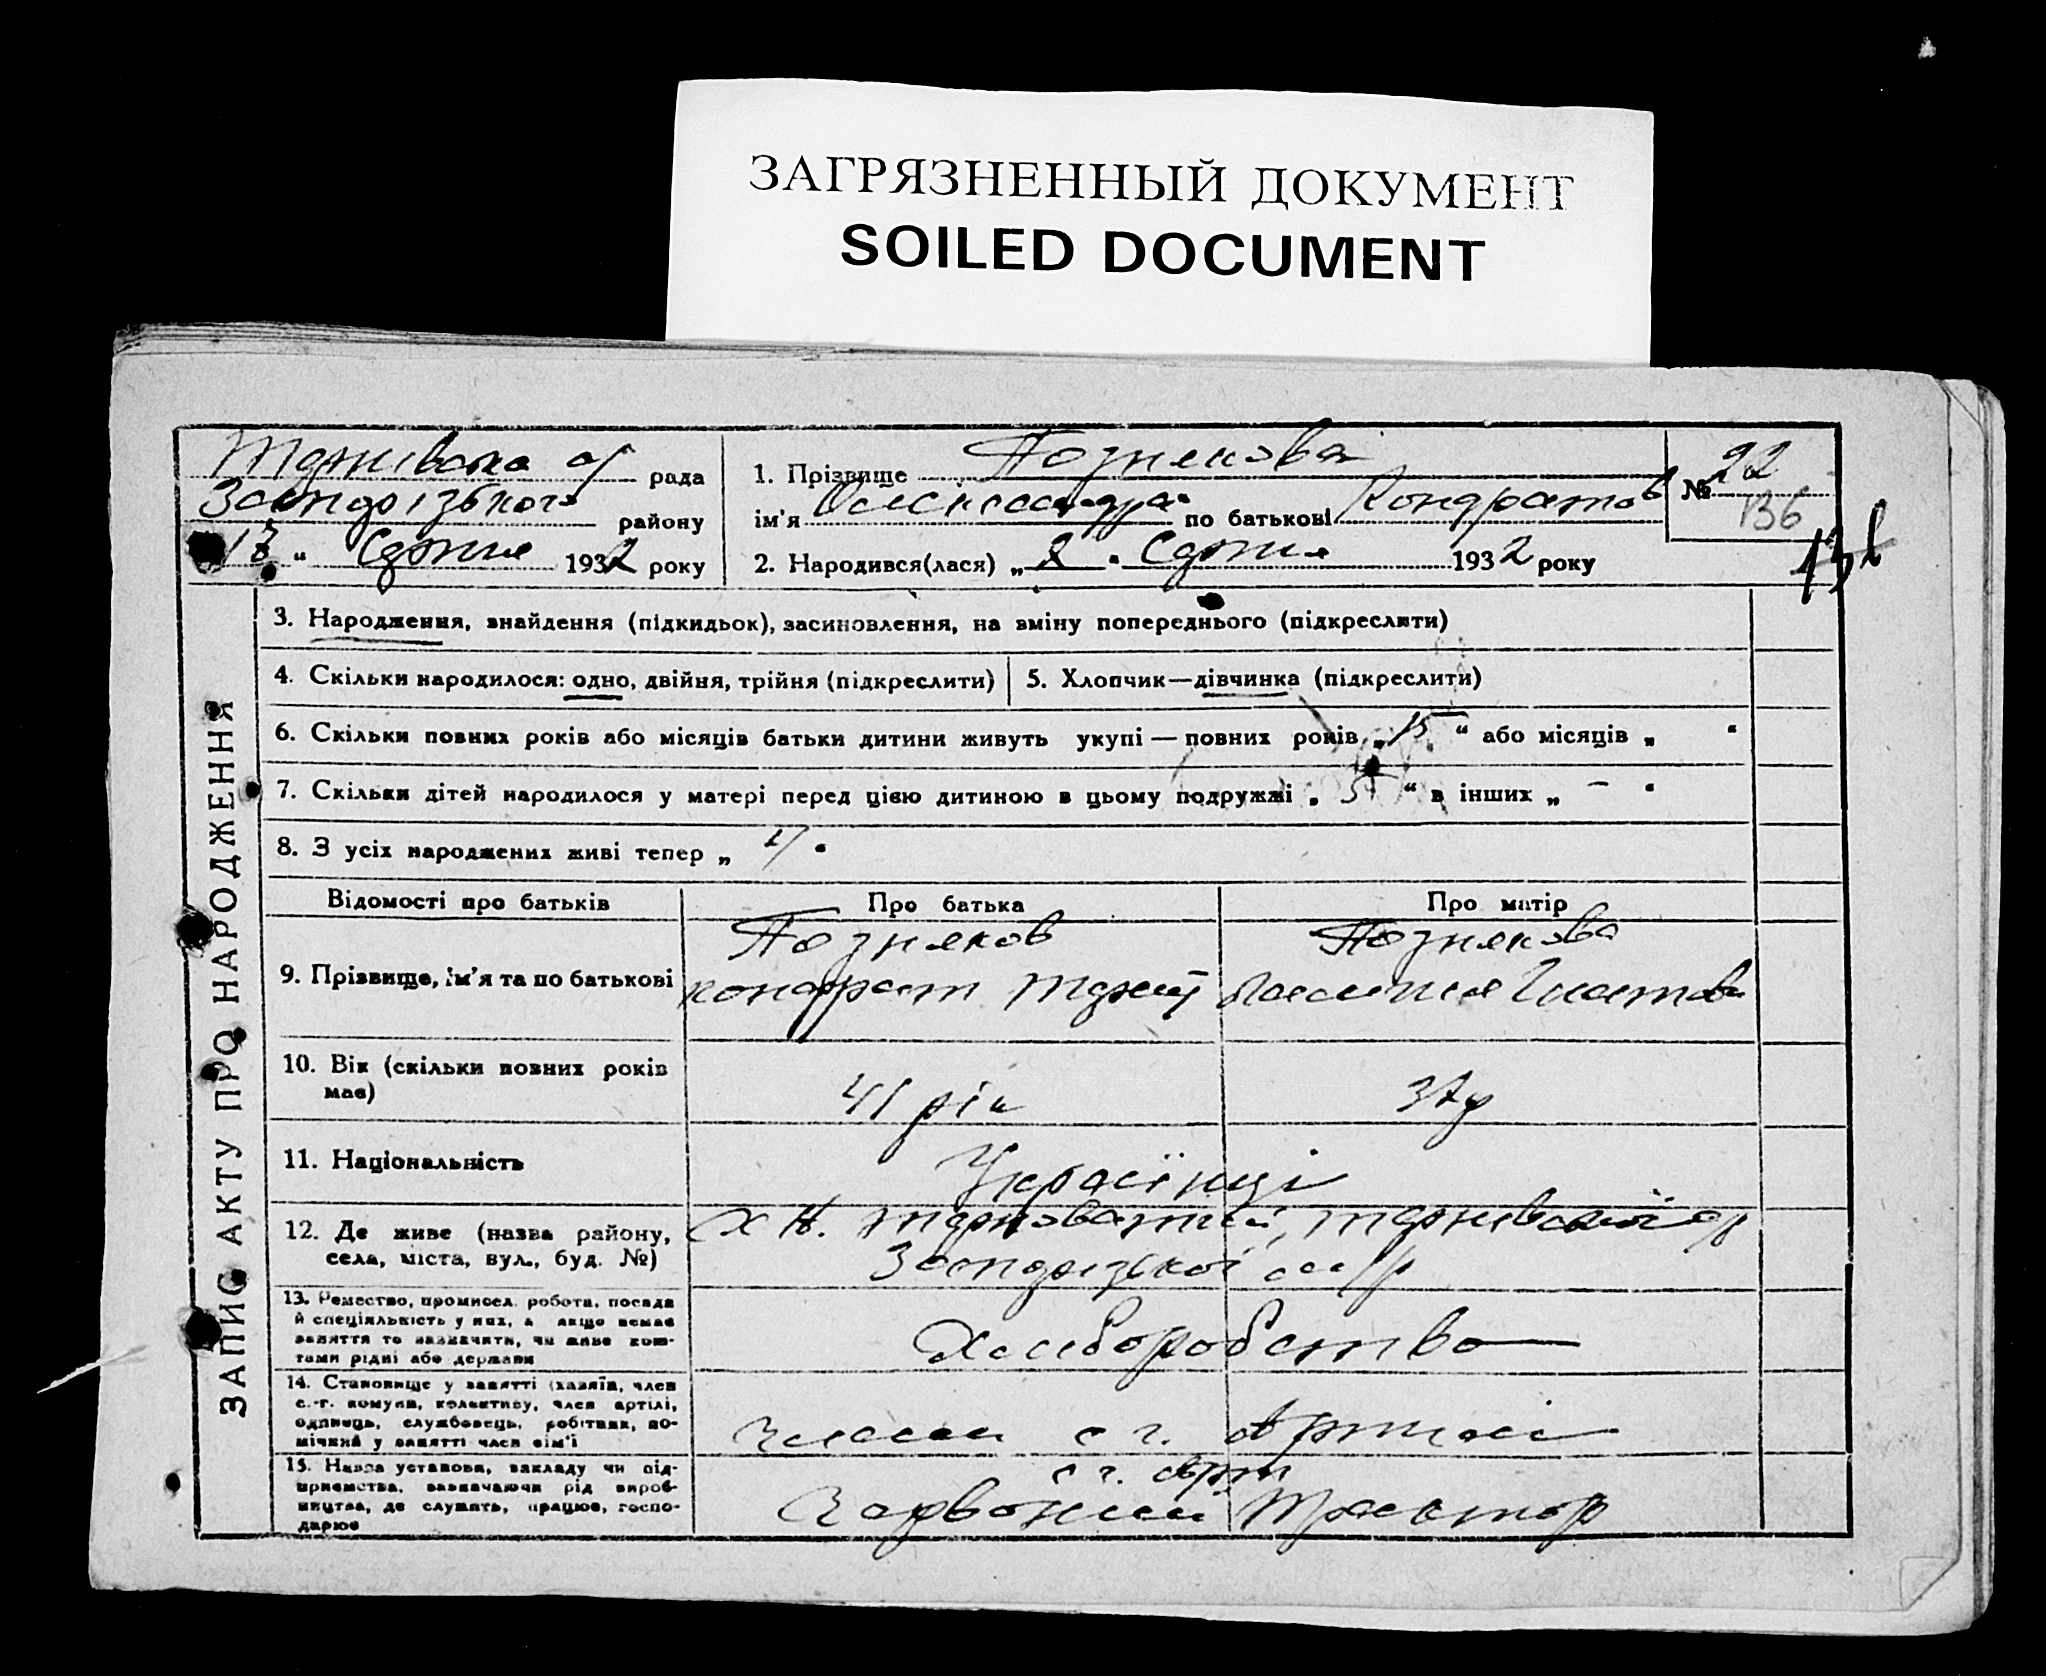 ЗАГРЯЗНЕННЫЙ ДОКУМЕНТ
SOILED DOCUMENT
Тернівська с/ рада
Запорізького району
" Січня 1932 року
1. Прізвище Познякова
ім'я Олександра по батькові Кондратов
2. Народився(лася) „ 2 " Січня 1932 року
№ 22
136
136
ЗАПИС АКТУ ПРО НАРОДЖЕННЯ
3. Народження, знайдення (підкидьок), засиновлення, на зміну попереднього (підкреслити)
4. Скільки народилося: одно, двійня, трійня (підкреслити)
5. Хлопчик—дівчинка (підкреслити)
6. Скільки повних років або місяців батьки дитини живуть укупі — повних років „ 15 " або місяців „ "
7. Скільки дітей народилося у матері перед цією дитиною в цьому подружжі „ 5 " в інших „ – "
8. З усіх народжених живі тепер „ "
Відомості про батьків Про батька Про матір
9. Прізвище, ім'я та по батькові
Позняков
Кондрат
Познякова
10. Вік (скільки повних років має)
41 рік
11. Національність
Українці
12. Де живе (назва району, села, міста, вул., буд. №)
Х Н. Терноватий, Тернівської с/р
Запорізької
13. Ремество, промисел, робота, посада
й спеціяльність у них, а якщо немає
заняття то зазначити, чи живе кош-
тами рідні або держави
Хліборобство
14. Становище у занятті (хазяїн, член
с.-г. комуни, колективу, член артілі,
одинець, службовець, робітник, по-
мічний у занятті член сім'ї
Члени с г. Артілі
15. Назва установи, закладу чи під-
приємства, зазначаючи рід вироб-
ництва, де служить, працює, госпо-
дарює
с г. арт
Червоний Трактор